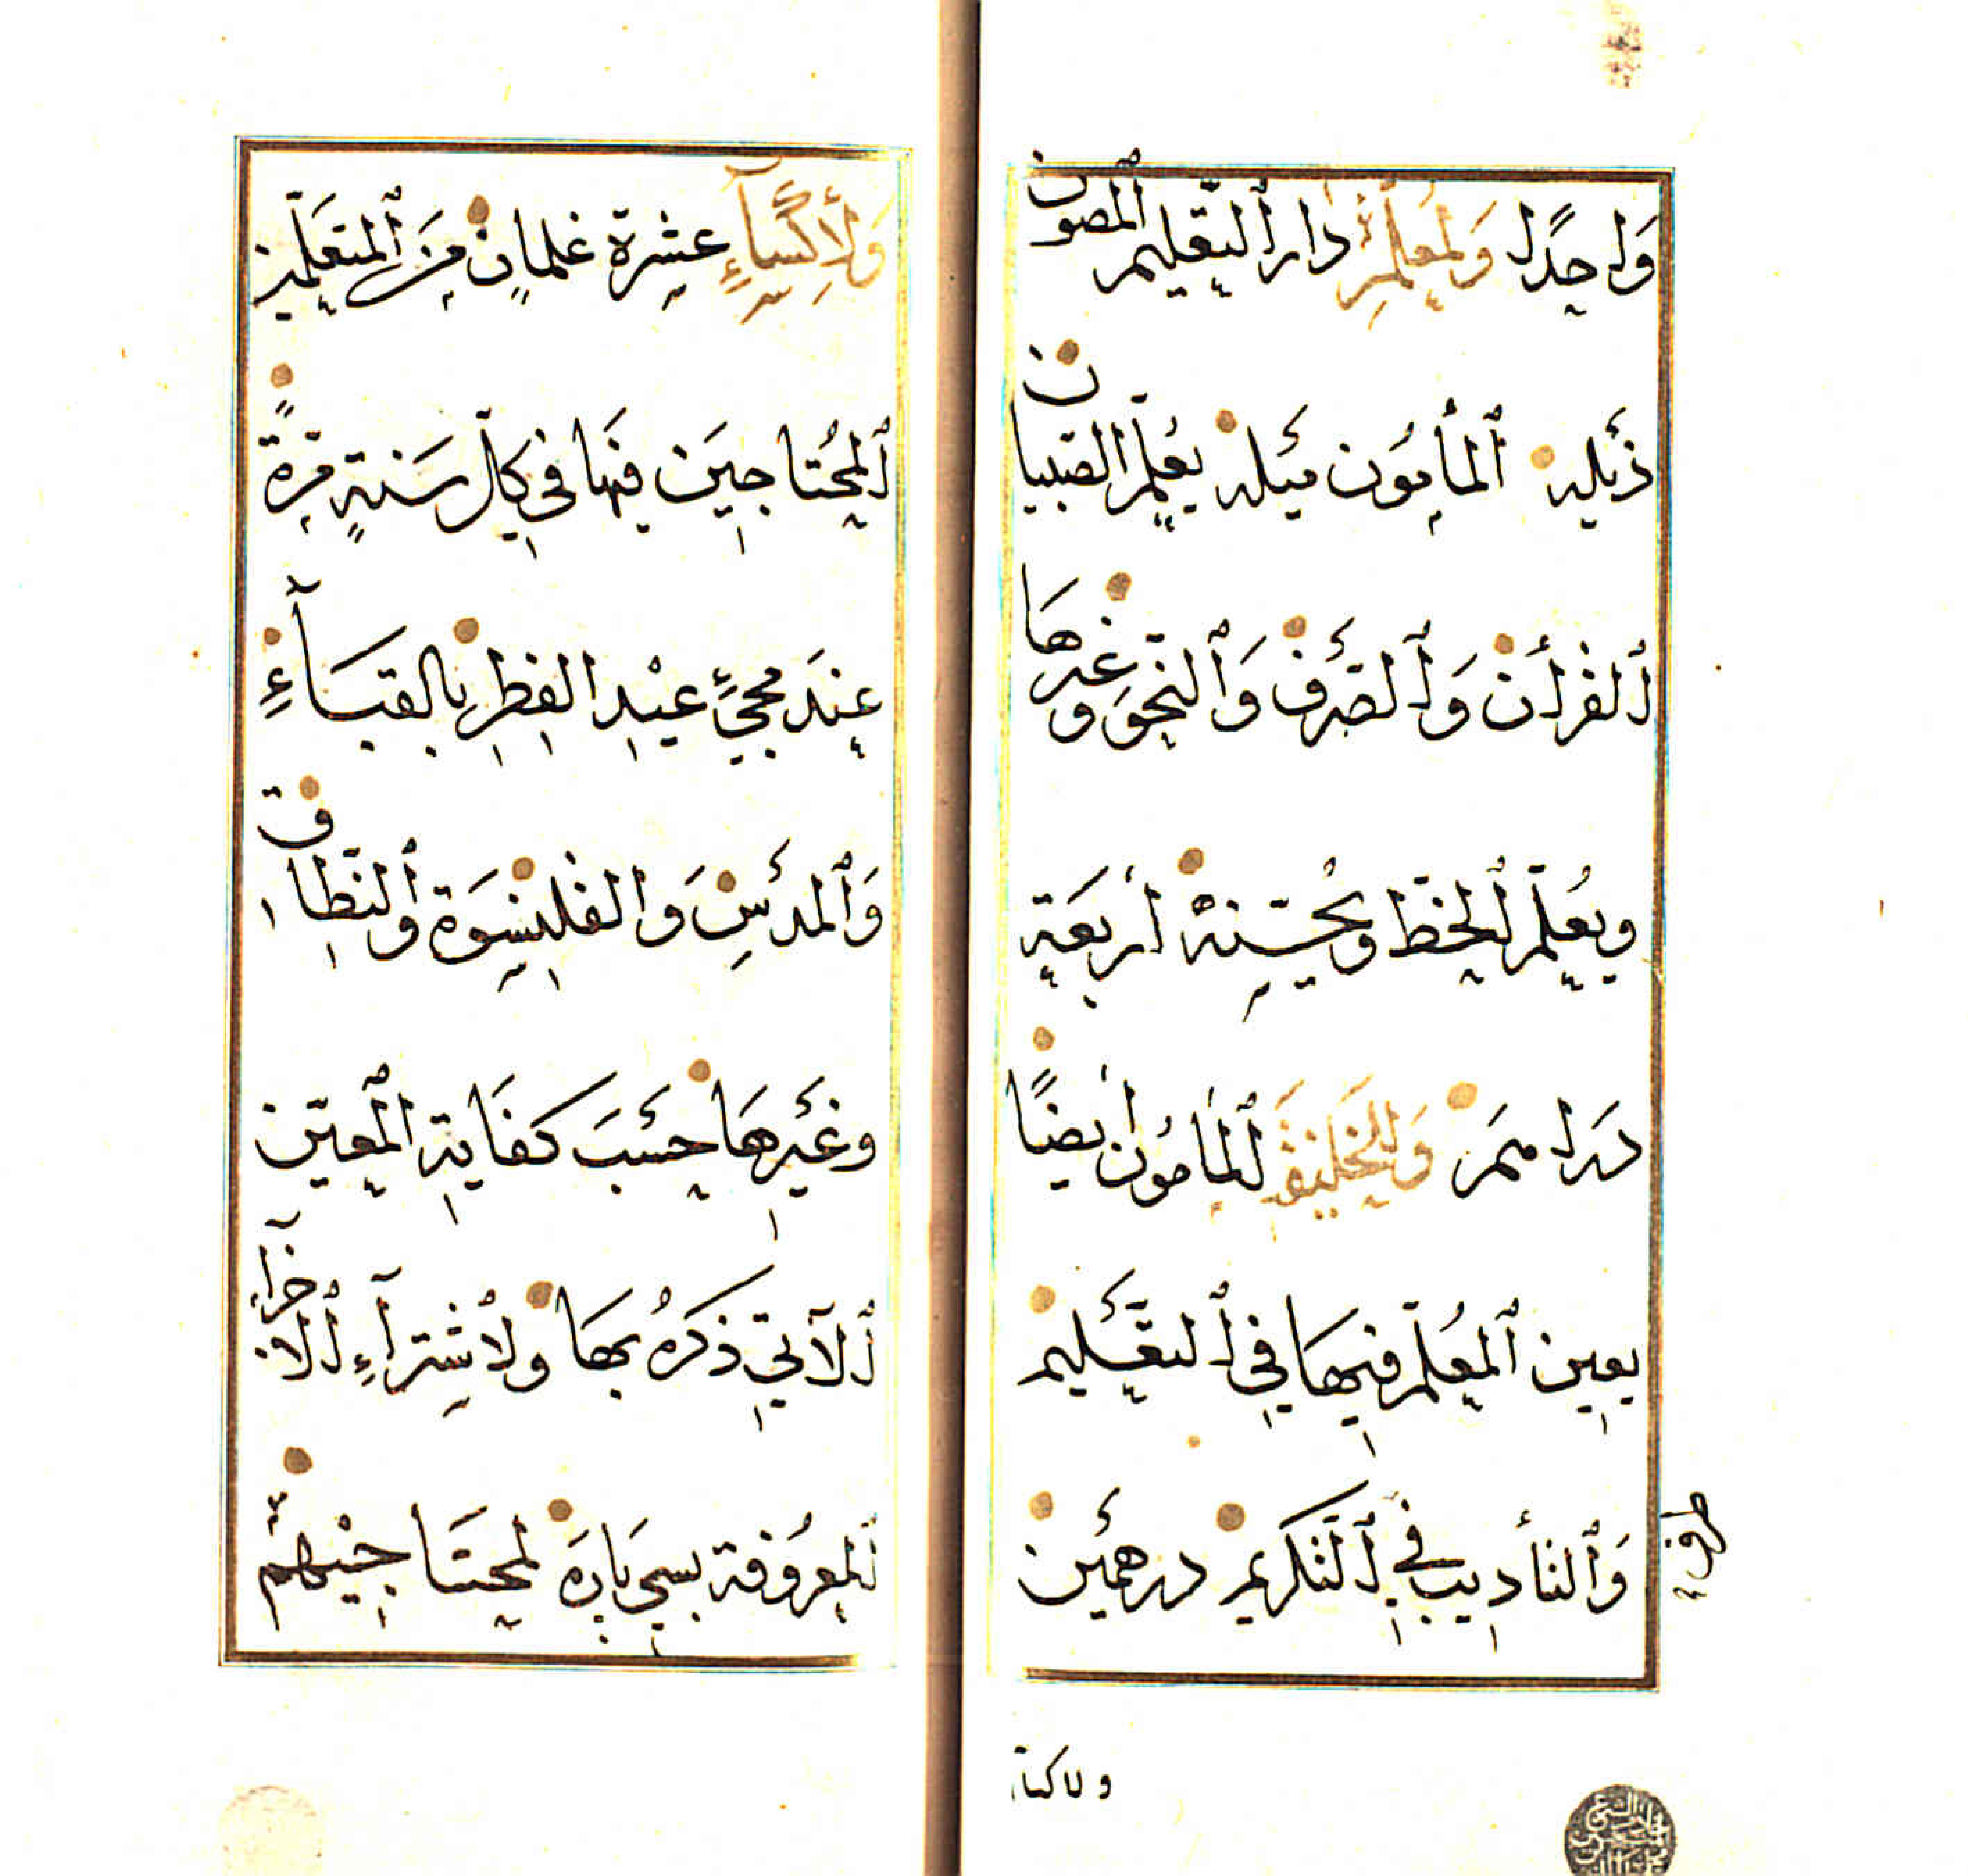 وَاحِدًا وَلِمُعَلِّمِ دَارِ ٱلتَّعْلِيمِ ٱلْمَصُونِ
ذَيْلِهِ ٱلْمَأْمُونِ مَيْلِهِ يُعَلِّمُ الصِّبْيَانَ
ٱلْقُرْأٰنَ وَٱلصَّرْفَ وَٱلنَّحْوَ وَغَيْرَهَا
وَيُعَلِّمُ ٱلْخَطَّ وَيُحَسِّنُهُ أَرْبَعَةِ
دَرَاهِمَ وَلِلْخَلِيفَةِ ٱلْمَأْمُونِ أَيْضًا
يُعِينُ ٱلْمُعَلِّمَ فِيهَا فِي ٱلتَّعْلِيمِ
وَٱلتَّأْدِيبِ فِي ٱلتَّكْرِيمِ دِرْهَمَيْنِ
ولاكسآ
وَلِأِكْسَآءِ عَشَرَةِ غِلْمَانٍ مِنَ ٱلْمُتَعَلِّمِينَ
ٱلْمُحْتَاجِينَ فِيهَا فِي كُلِّ سَنَةٍ مَرَّةً
عِنْدَ مَجِيءِ عِيْدِ الْفِطْرِ بِالْقَبَآءِ
وَٱلْمِدْسِ وَالْقَلَنْسُوَةِ وَٱلنِّطَاقِ
وَغَيْرِهَا حَسْبَ كِفَايَةِ ٱلْمُعَيَّنِ
ٱلْآتِي ذِكْرُهُ بِهَا وَلِاشْتِرَآءِ ٱلْأَجْزَآءِ
ٱلْمَعْرُوفَةِ بِسِيْ پَارَهَ لِمُحْتَاجِيْهِمْ